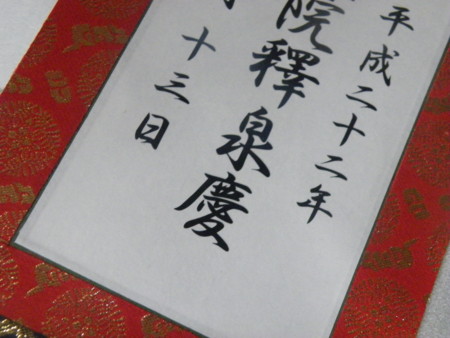 平成二十二年
院釋泉慶
十三日